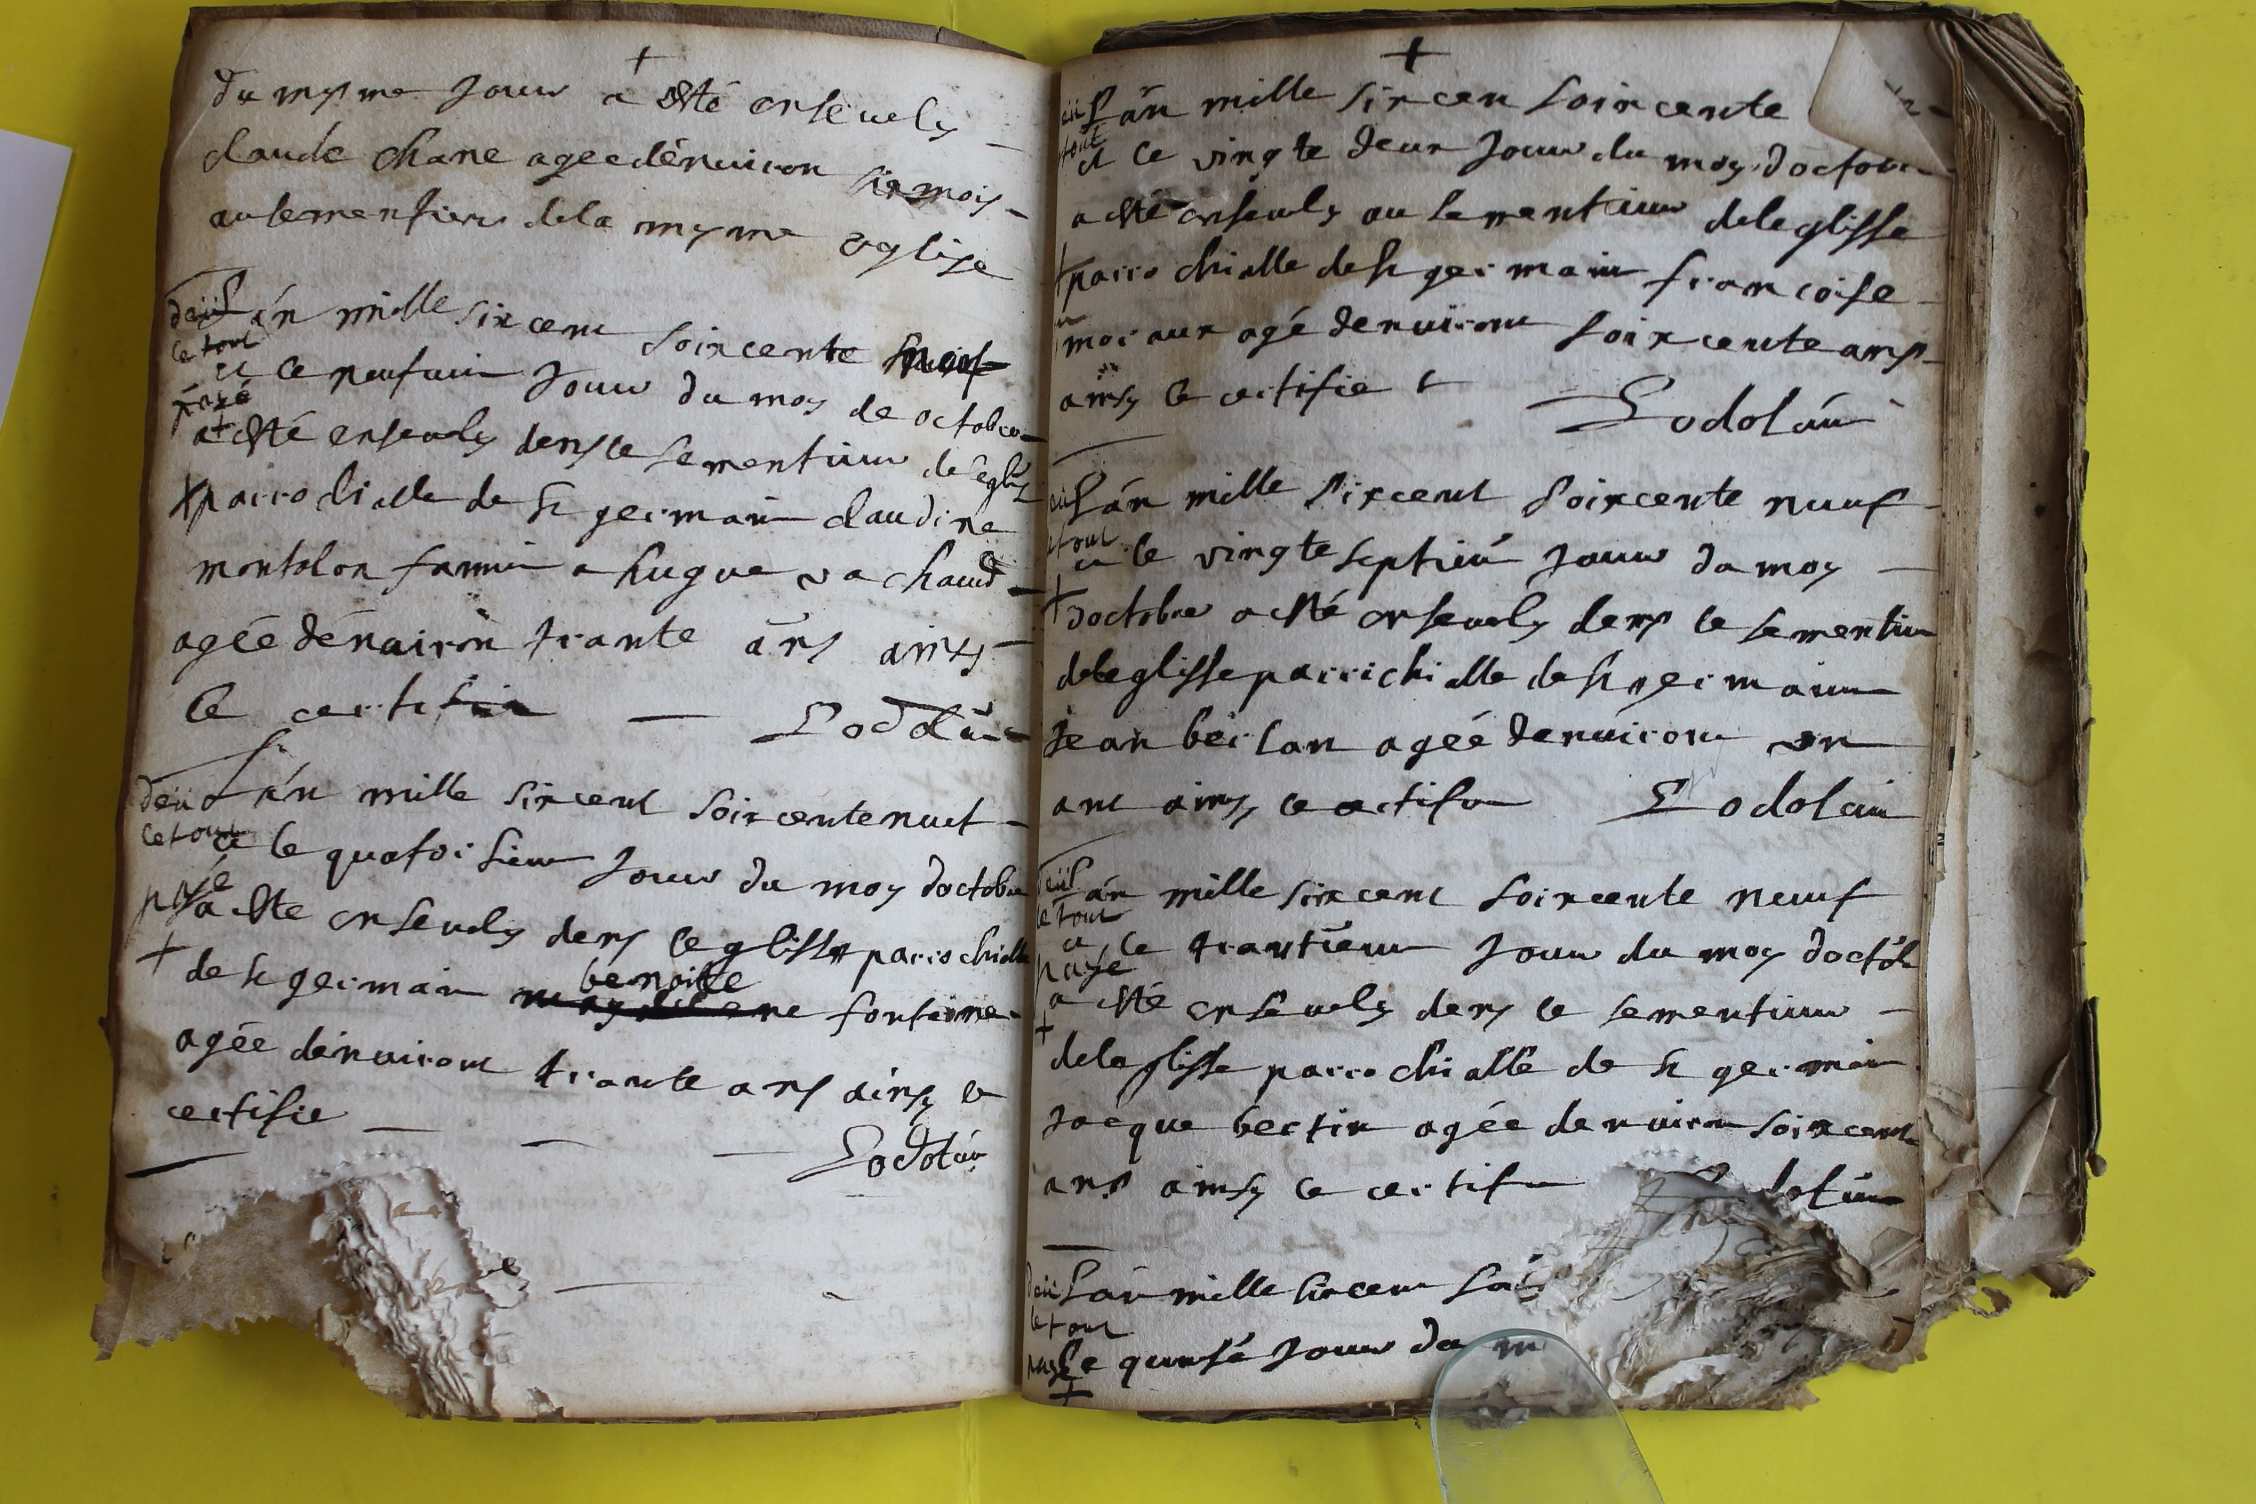 +
du mysme Jour a esté enseuely
claude chane agee dénuiron six mois
au sementiere dela mysme eglise
L'án mille six cent soixcente neuf
deü
ce tout
et ce neufuie Jour du moy de octobre
payé
+
a esté enseuely dens le sementiere de leglise
+ parrochialle de st germain claudine
montolon famme a hugue vachaud
agée dénuiron trante áns ainsy
le certifie Lodolin
L'án mille six cent soixcente neuf
deü
ce tout
et le quatorsieme Jour du moy doctobre
payé
a esté enseuely dens leglisse parrochialle
+
de st germain benoitte fonteine
agée dénuiront trante ans ainsy le
certifie
Lodolin
+
L'án mille six cen soixcente
tout
et le vingte deux Jour du moy doctobre
a esté enseuely au sementiere de leglisse
+ parrochialle de st germain francoise
moraux agé denuiront soixcente ans
ainsy le certifie
Lodolin
L'án mille six cent soixcente neuf
tout
et le vingte septieme Jour du moy
+
doctobre a esté enseuely dens le sementiere
de leglisse parrichialle de st germain
Jean berlan agéé denuiront un
ant ainsy le certifie Lodolin
L'án mille six cent soixcente neuf
deü
le tout
et le trantieme Jour du moy doctob
paye
a esté enseuely dens le sementiere
+
de leglisse parrochialle de st germain
Jacque bertin agée denuiron soixcente
ans ainsy le certifie
L'án mille six cent soi
deü
le tout
paye
le quinsé Jour du m
+